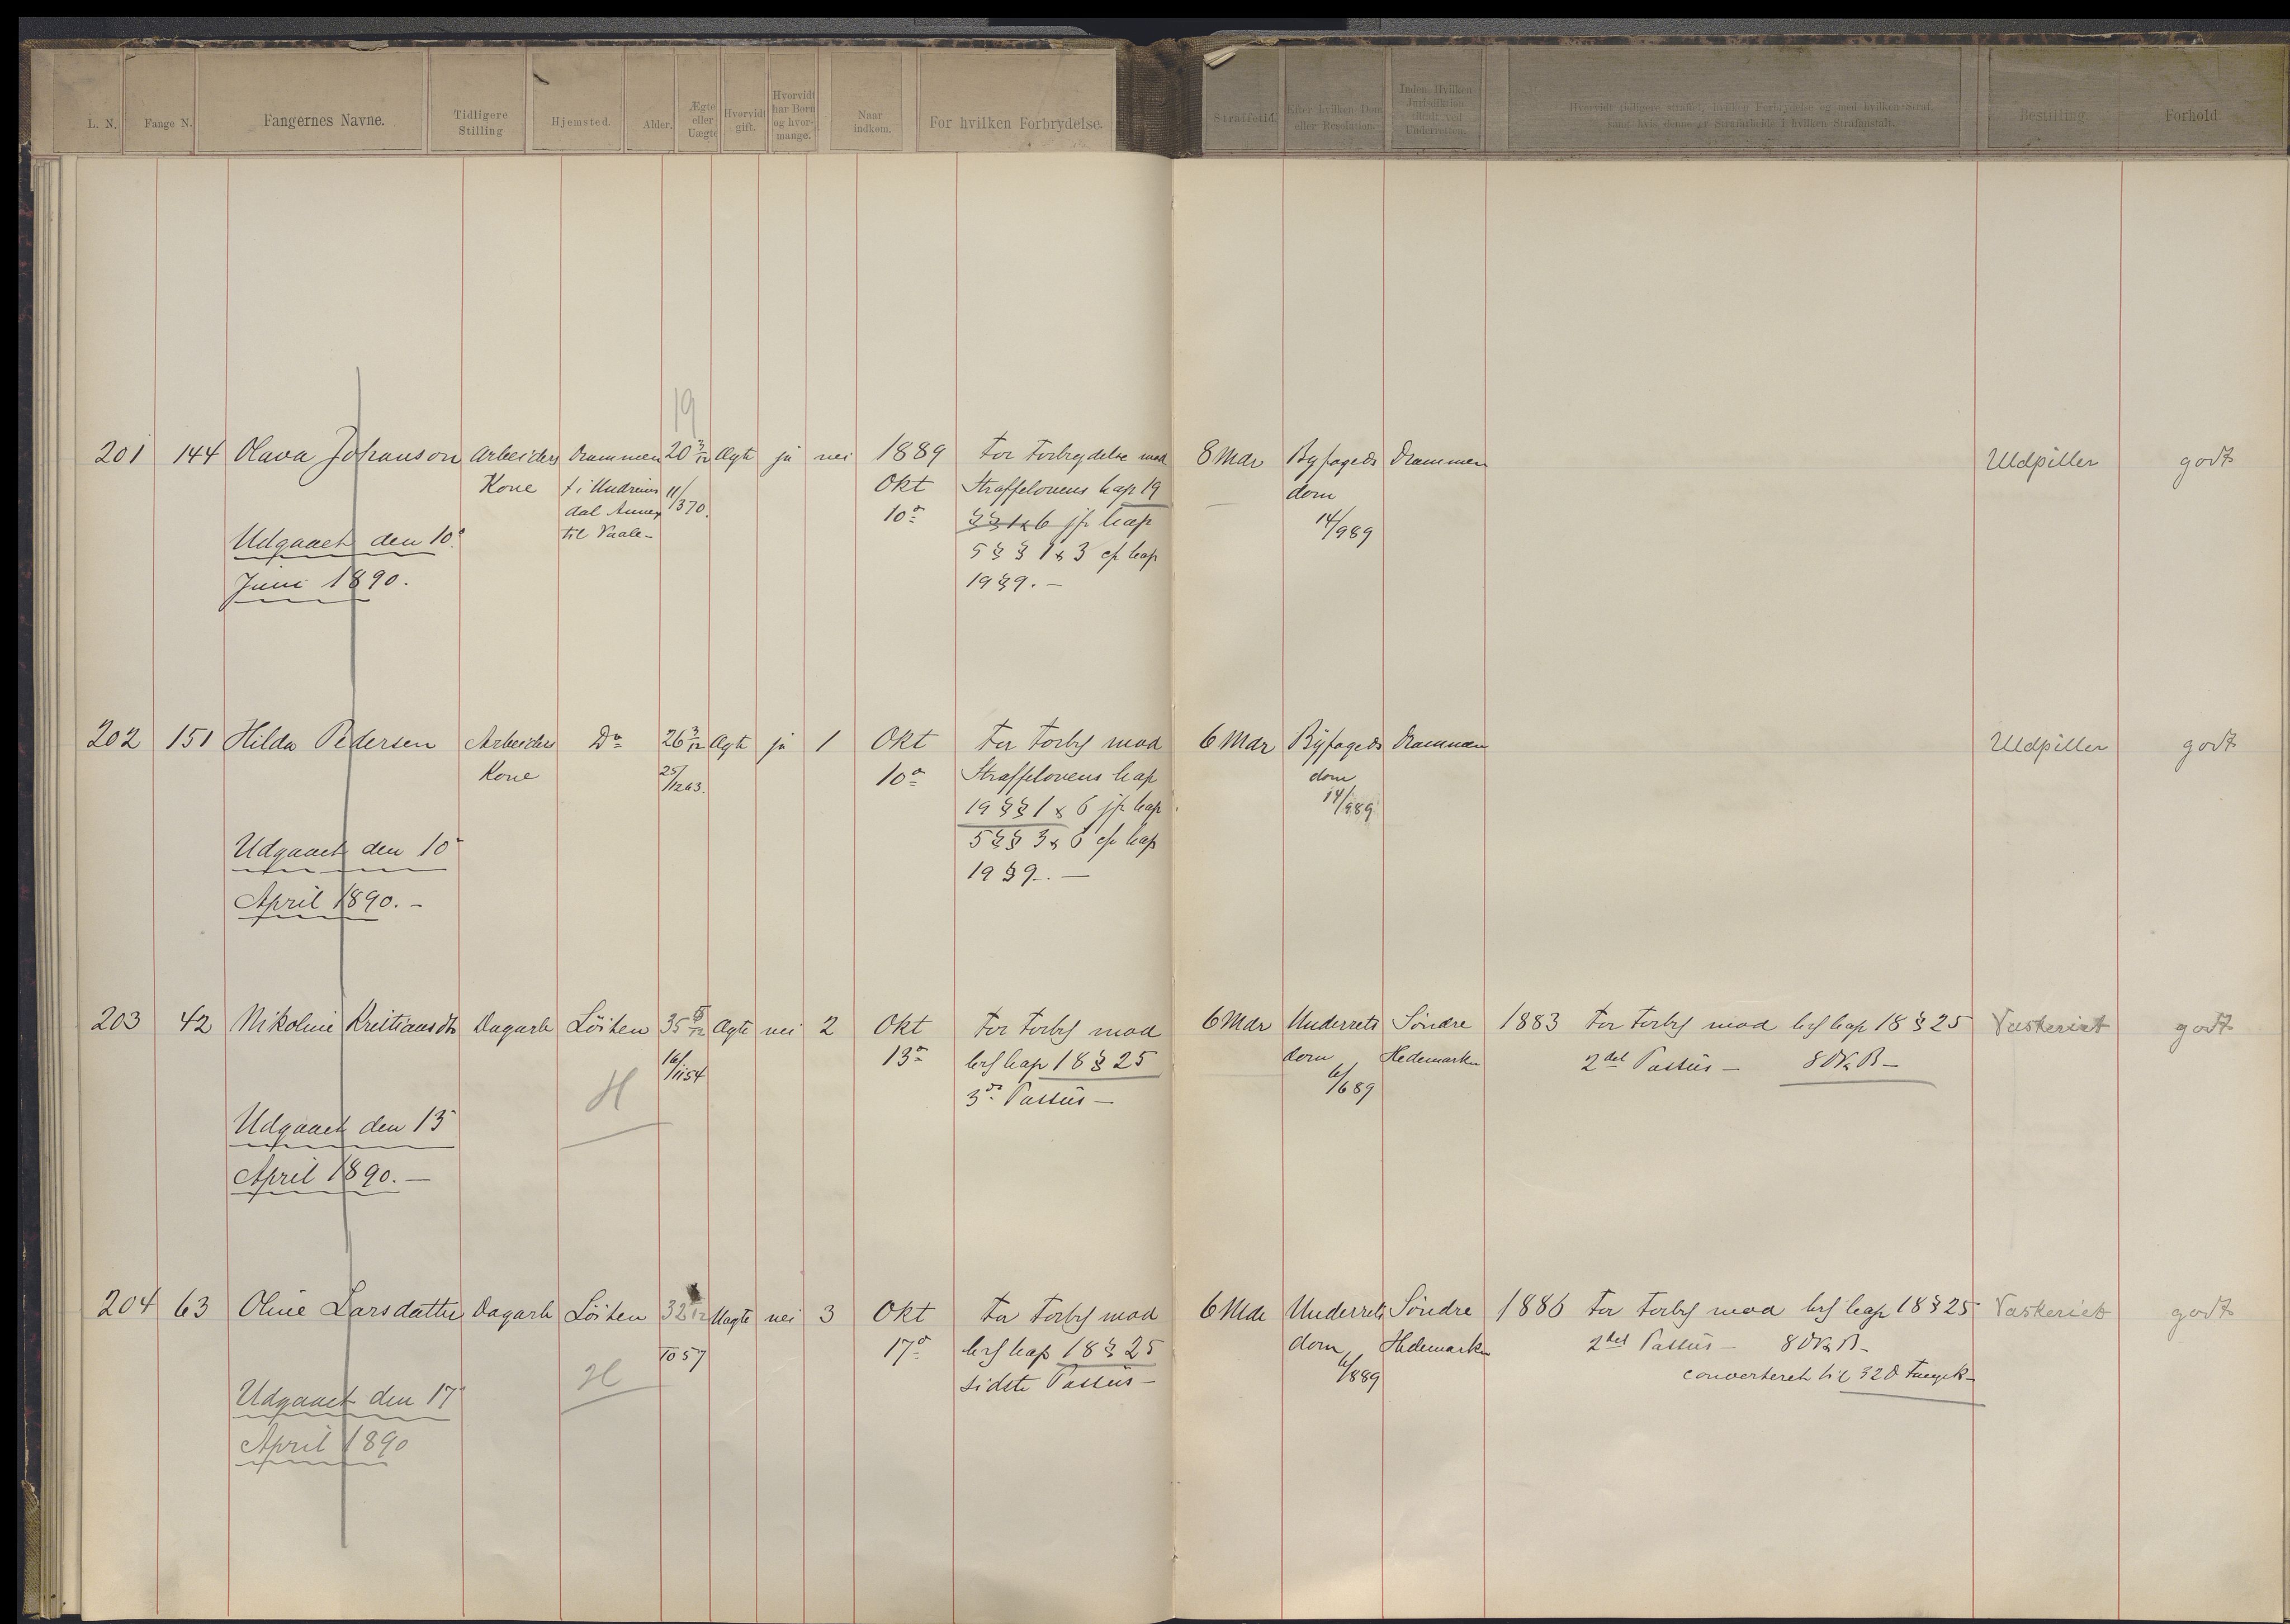 L. N. Fange N. Fangernes Navne. Tidligere Stilling Hjemsted. Alder. Ægte eller Uægte Hvorvidt gift. Hvorvidt har Børn og hvormange. Naar indkom. For hvilken Forbrydelse. Straffetid. Efter hvilken Dom eller Resolution. Inden Hvilken Jurisdiktion dømt ved Underretten. Hvorvidt tidligere straffet, hvilken Forbrydelse og med hvilken Straf, samt hvis denne er Strafarbeide i hvilken Strafanstalt. Bestilling. Forhold.
19
201 144 Olava Johanson Arbeiders Drammen 20 3/12 Ægte ja nei 1889 For Forbrydelse mod 8 Mdr Byfogeds Drammen Uldpiller godt
Kone f i Undrums 11/3 70. Okt Straffelovens kap 19 dom
dal Annex 10de §§ 1 & 6 jfr kap 14/9 89
Udgaaet den 10de til Vaale- 5 §§ 1 & 3 cfr kap
Juni 1890. 19 § 9. -
202 151 Hilda Pedersen Arbeiders Do 26 3/12 Ægte ja 1 Okt For Forbr mod 6 Mdr Byfogeds Drammen Uldpiller godt
Kone 25/12 63. 10de Straffelovens kap dom
19 §§ 1 & 6 jfr kap 14/9 89
Udgaaet den 10de 5 §§ 3 & 6 cfr kap
April 1890. - 19 § 9. -
203 42 Nikoline Kristiansdtr Dagarb Löiten 35 /12 Ægte nei 2 Okt For Forbr mod 6 Mdr Underrets Söndre 1883 For Forbr mod krl kap 18 § 25 Vaskeriet godt
16/11 54 13de krl kap 18 § 25 dom Hedemarken 2det Passus - 8 D V & B -
H 3die Passus - 6/6 89
Udgaaet den 13de
April 1890. -
204 63 Oline Larsdatter Dagarb Löiten 32 /12 Uægte nei 3 Okt For Forbr mod 6 Mdr Underrets Söndre 1886 For Forbr mod krl kap 18 § 25 Vaskeriet godt
10 57 17de krl kap 18 § 25 dom Hedemarken 2det Passus - 8 D V & B -
H sidste Passus - 6/8 89 converteret til 32 D Fængsk -
Udgaaet den 17de
April 1890